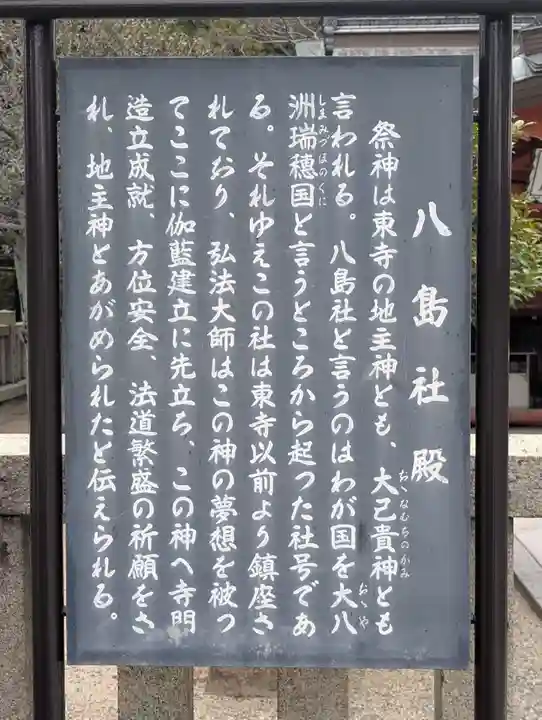 八島社殿
祭神は東寺の地主神とも、大己貴神とも
おゝなむちのかみ
言われる。八島社と言うのはわが国を大八
おゝや
洲瑞穂国と言うところから起った社号であ
しまみづほのくに
る。それゆえこの社は東寺以前より鎮座さ
れており、弘法大師はこの神の夢想を被つ
てここに伽藍建立に先立ち、この神へ寺門
造立成就、方位安全、法道繁盛の祈願をさ
れ、地主神とあがめられたと伝えられる。